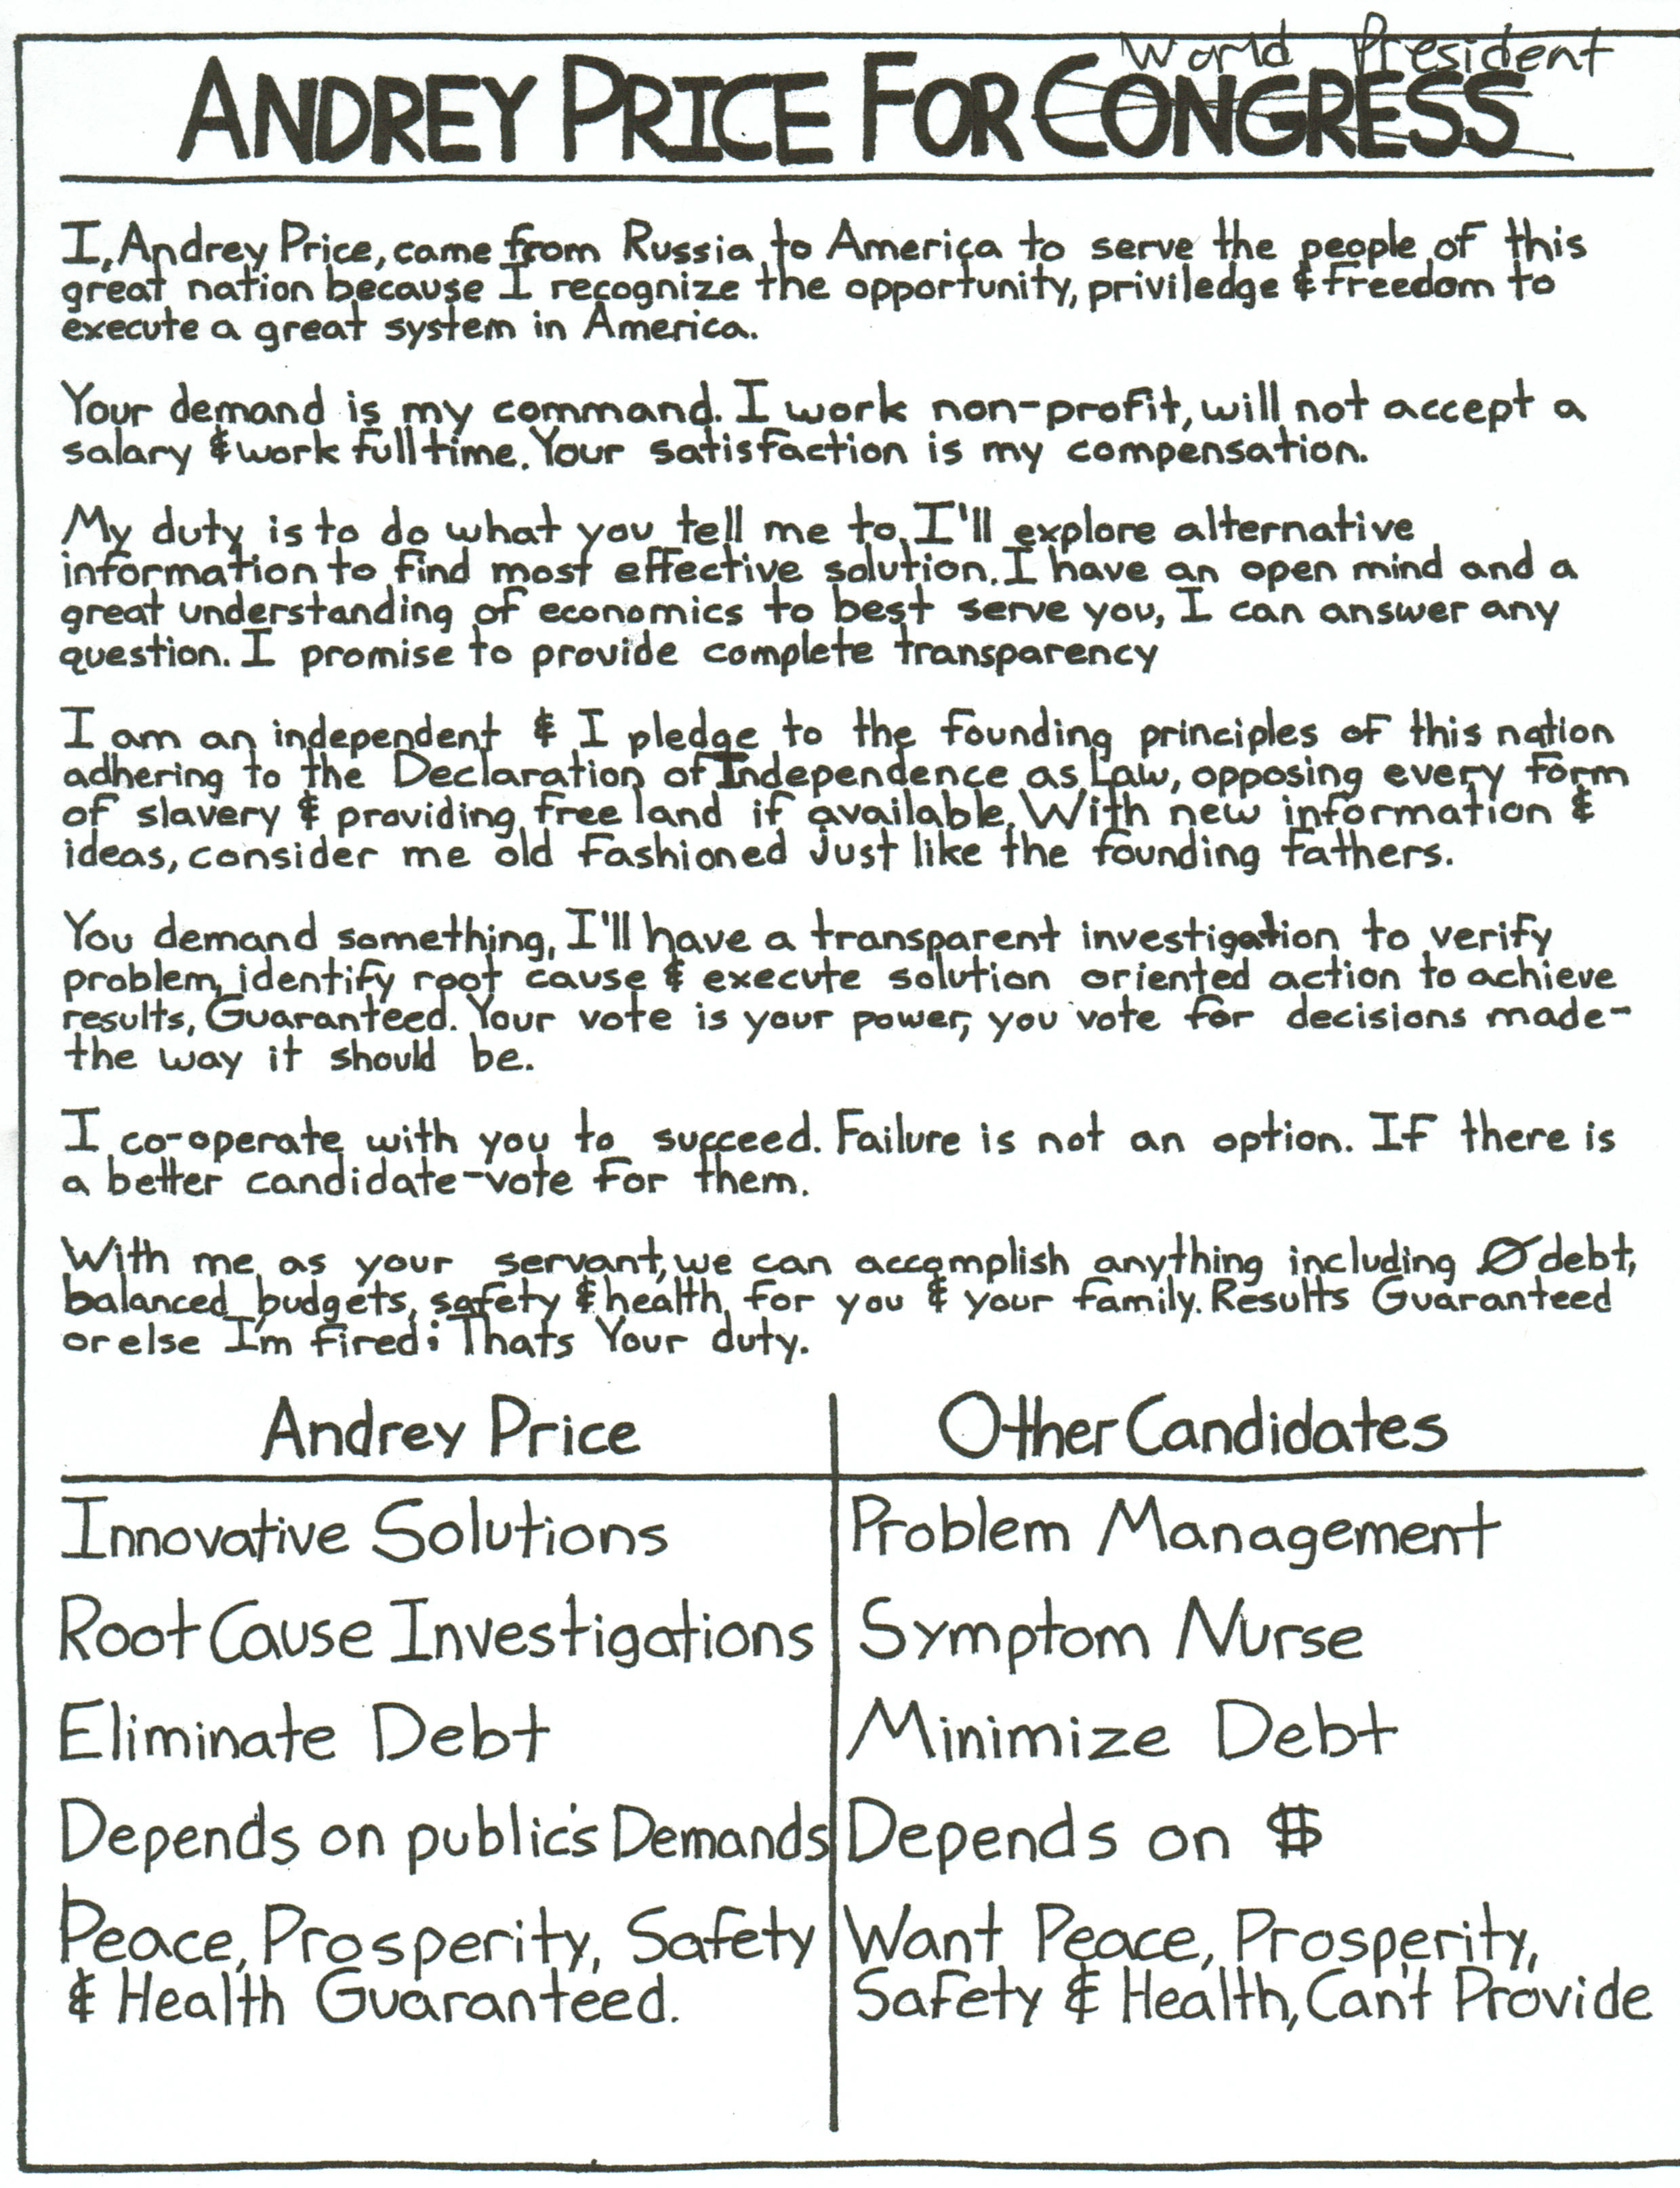 World President
ANDREY PRICE FOR CONGRESS
I, Andrey Price, came from Russia to America to serve the people of this
great nation because I recognize the opportunity, priviledge & freedom to
execute a great system in America.
Your demand is my command. I work non-profit, will not accept a
salary & work full time. Your satisfaction is my compensation.
My duty is to do what you tell me to. I'll explore alternative
information to find most effective solution. I have an open mind and a
great understanding of economics to best serve you, I can answer any
question. I promise to provide complete transparency
I am an independent & I pledge to the founding principles of this nation
adhering to the Declaration of Independence as Law, opposing every form
of slavery & providing free land if available. With new information &
ideas, consider me old fashioned just like the founding fathers.
You demand something, I'll have a transparent investigation to verify
problem, identify root cause & execute solution oriented action to achieve
results, Guaranteed. Your vote is your power, you vote for decisions made-
the way it should be.
I co-operate with you to succeed. Failure is not an option. If there is
a better candidate-vote for them.
With me as your servant, we can accomplish anything including Ø debt,
balanced budgets, safety & health, for you & your family. Results Guaranteed
or else I'm fired; Thats Your duty.
Andrey Price Other Candidates
Innovative Solutions Problem Management
Root Cause Investigations Symptom Nurse
Eliminate Debt Minimize Debt
Depends on public's Demands Depends on $
Peace, Prosperity, Safety Want Peace, Prosperity,
& Health Guaranteed. Safety & Health, Can't Provide